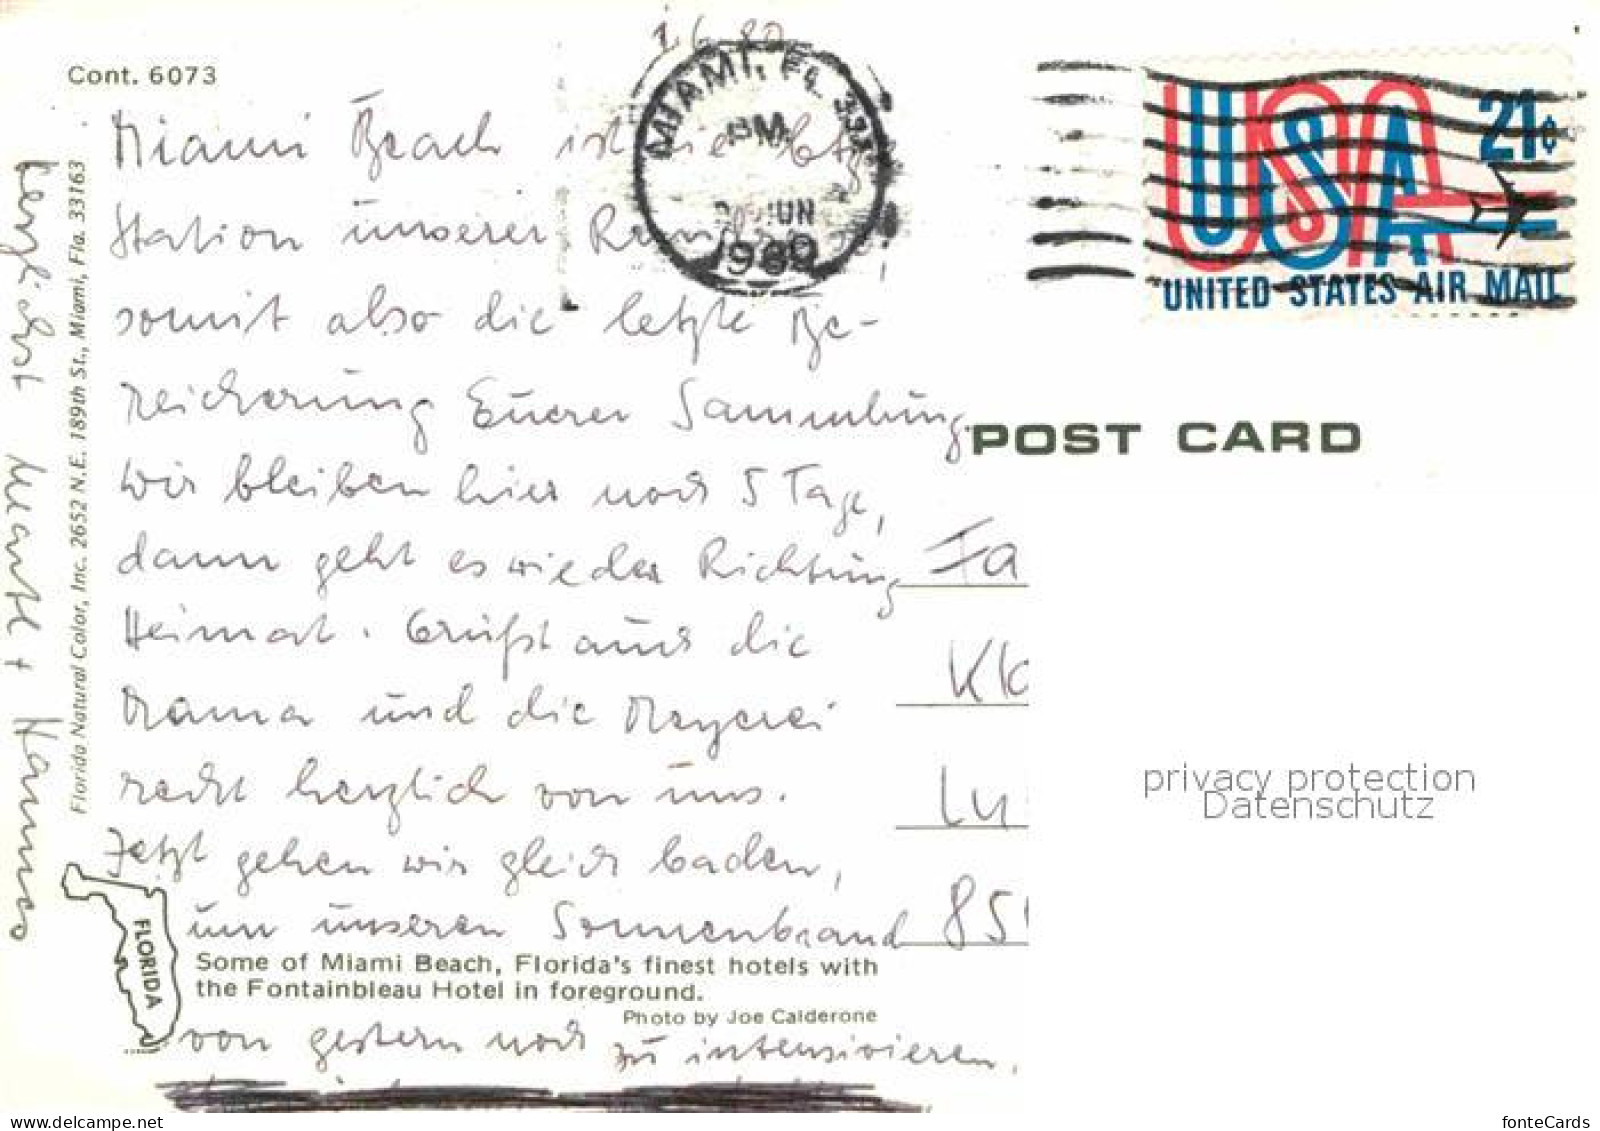 1.6.80
Cont. 6073
MIAMI, FL 331
PM
JUN
1980
USA 21¢
UNITED STATES AIR MAIL
Miami Beach ist die letzte
Station unserer
somit also die letzte Be-
reicherung Eurer Sammlung.
Wir bleiben hier noch 5 Tage,
dann geht es wieder Richtung
Heimat. Grüßt auch die
Mama und die Meyerei
recht herzlich von uns.
Jetzt gehen wir gleich baden,
um unseren Sonnenbrand
von gestern noch zu intensivieren.
herzlichst Martl + Hannes
Florida Natural Color, Inc. 2652 N.E. 189th St., Miami, Fla. 33163
FLORIDA
Some of Miami Beach, Florida's finest hotels with
the Fontainbleau Hotel in foreground.
Photo by Joe Calderone
POST CARD
Fa
Kl
Lu
85
privacy protection
Datenschutz
www.delcampe.net
fonteCards